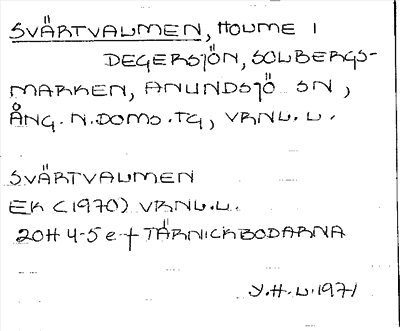 SVÄRTVALMEN, HOLME I
DEGERSJÖN, SOLBERGS-
MARKEN, ANUNDSJÖ SN,
ÅNG. N. DOMS. TG, VRNL.L.
SVÄRTVALMEN
EK (1970) VRNL.L.
20H 4-5 e-f TÄRNICKBODARNA
Y.H-L. 1971